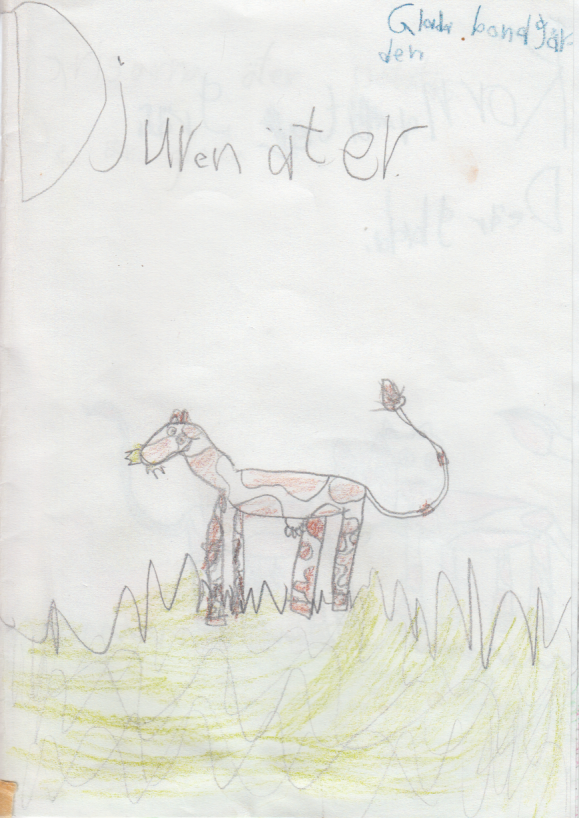 Glada. bondgår
den
Djuren äter.